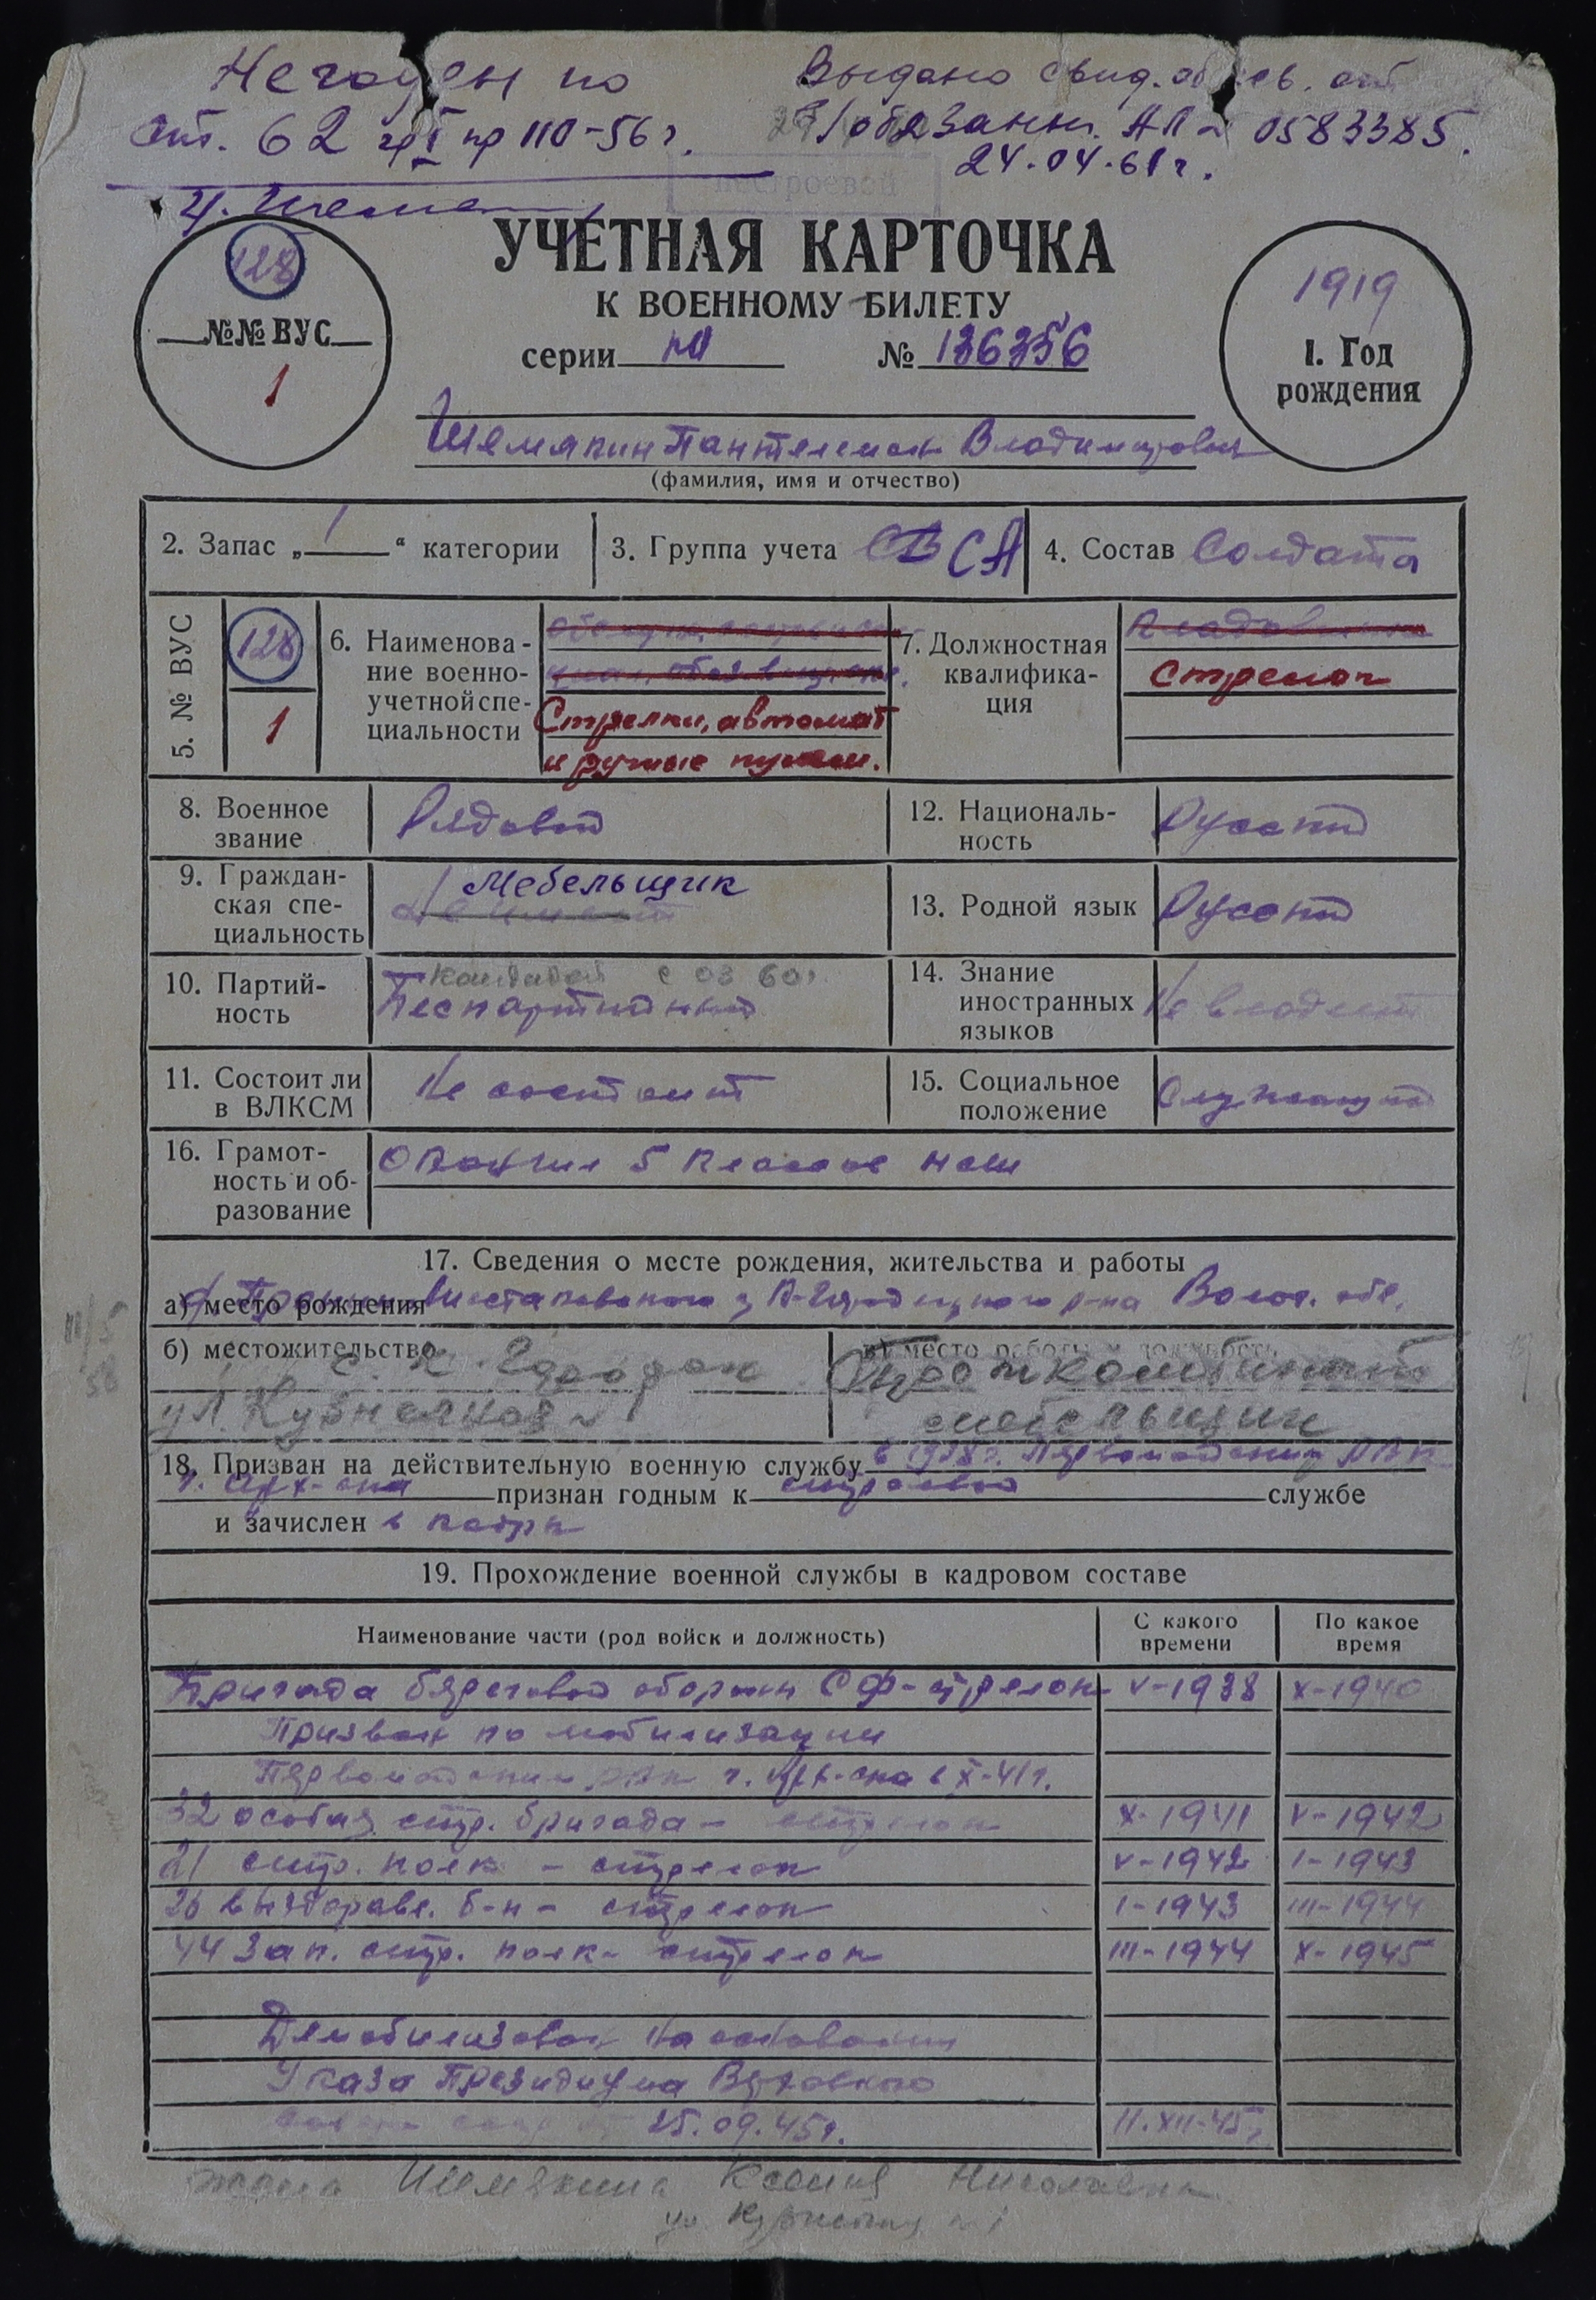 Негоден по
ст. 62 гр I пр 110-56 г.
Выдано свид. об осв. от
в/обязанн. АЛ № 0583385.
24.04.61 г.
нестроевой
УЧЕТНАЯ КАРТОЧКА
К ВОЕННОМУ БИЛЕТУ
серии НЛ № 136356
128
№№ ВУС
1
1919
1. Год
рождения
Шемякин Пантелемон Владимирович
(фамилия, имя и отчество)
2. Запас „1“ категории
3. Группа учета СА
4. Состав Солдаты
5. № ВУС
128
1
6. Наименова-
ние военно-
учетной спе-
циальности
Стрелки, автомат
и ручные пулем.
7. Должностная
квалифика-
ция
Стрелок
8. Военное
звание
Рядовой
12. Националь-
ность
Русский
9. Граждан-
ская спе-
циальность
Мебельщик
13. Родной язык Русский
10. Партий-
ность
Кандидат с 03 60г
Беспартийный
14. Знание
иностранных
языков
Не владеет
11. Состоит ли
в ВЛКСМ
Не состоит
15. Социальное
положение
Служащий
16. Грамот-
ность и об-
разование
Окончил 5 классов НСШ
17. Сведения о месте рождения, жительства и работы
а) место рождения К-Городецкого р-на Волог. обл.
б) местожительство с. К Городок
ул. Кузнецкая
в) место работы и должность Промкомбинат
мебельщик
18. Призван на действительную военную службу в 1938г. Первомайским РВК
г. Арх-ска признан годным к строевой службе
и зачислен в кадры
19. Прохождение военной службы в кадровом составе
Наименование части (род войск и должность)
С какого
времени
По какое
время
Бригада береговой обороны СФ-стрелок V-1938 X-1940
Призван по мобилизации
Первомайским РВК г. Арх-ска в X-41г.
32 особая стр. бригада - стрелок X-1941 V-1942
21 стр. полк - стрелок V-1942 I-1943
26 выздоравл. б-н - стрелок I-1943 III-1944
44 зап. стр. полк - стрелок III-1944 X-1945
Демобилизован на основании
Указа Президиума Верховного
25.09.45г. 11.XII-45г
жена Шемякина Ксения Николаевна